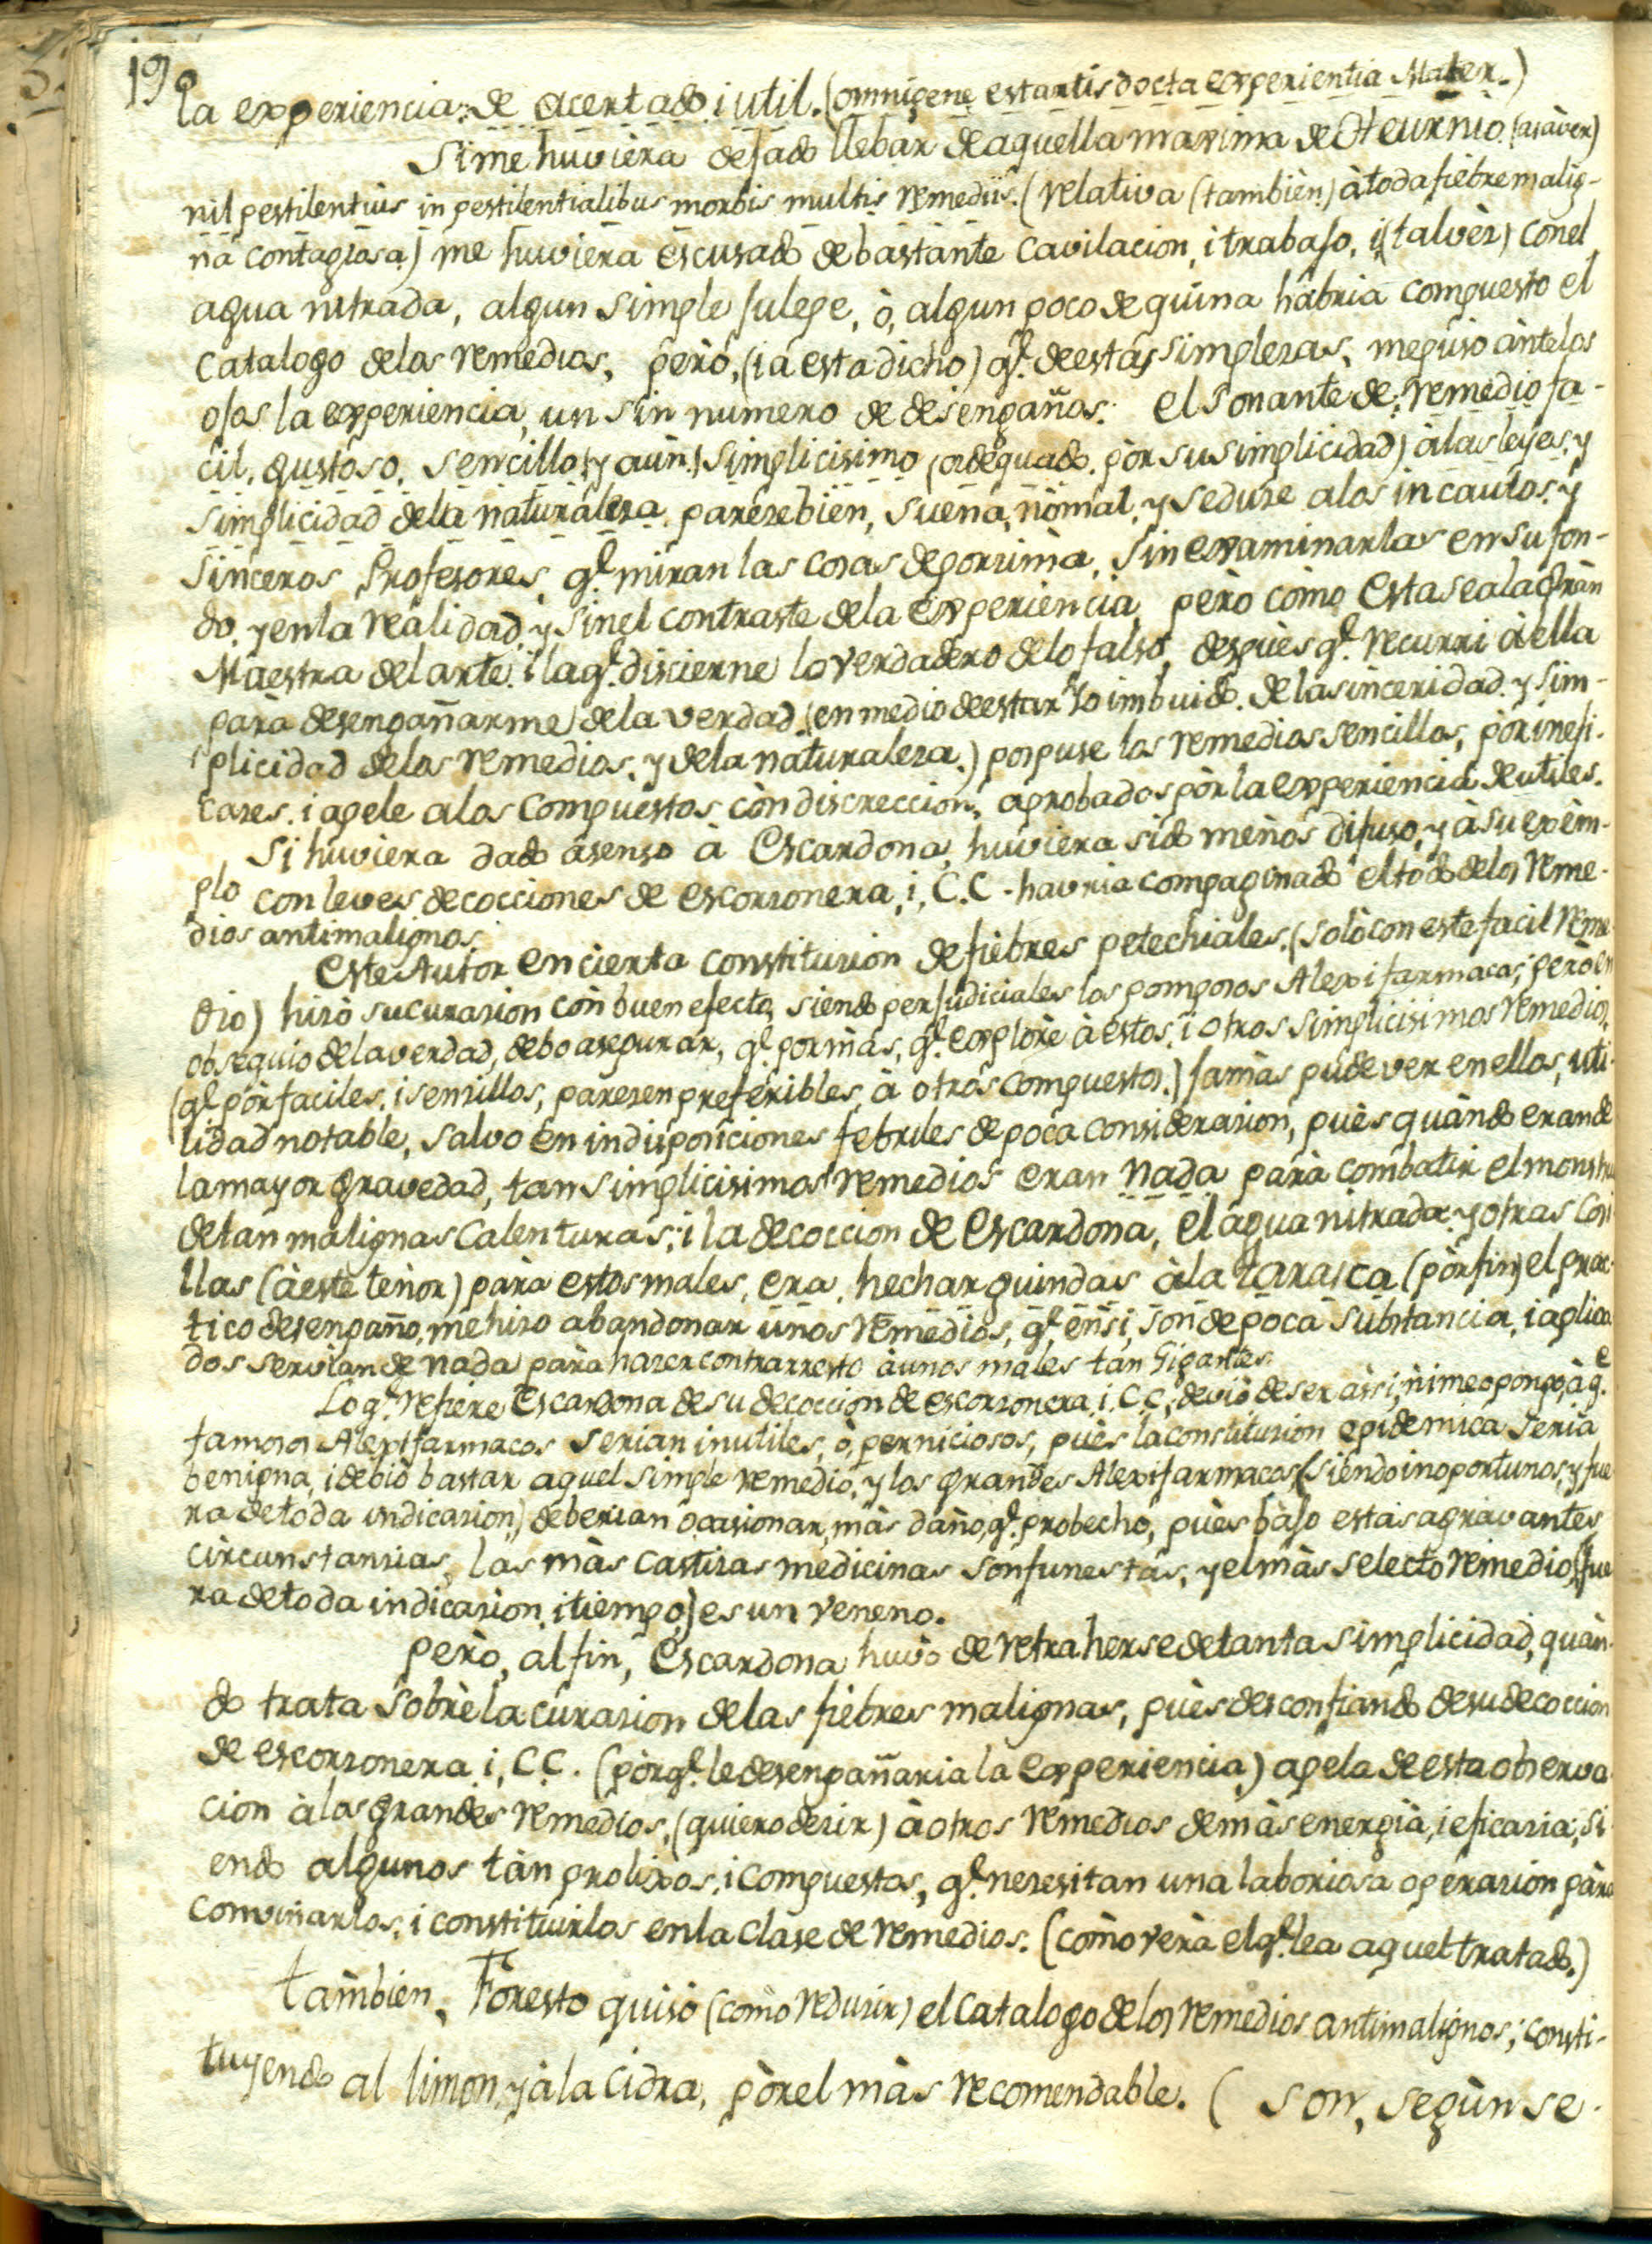 190
la experiencia: de acertado i util. (omnigene est artis docta experientia Mater.)
Sime huviera dejado llebar de aquella maxima de Heurnio (asaver)
nil pestilentius in pestilentialibus morbis multis remediis. (relativa (tambièn) à toda fiebre malig-
na contagiosa) me huviera escusado de bastante cavilacion, i trabajo, i (talvèz) conel
agua nitrada, algun simple julepe, ò, algun poco de quina habria compuesto el
catalogo delos remedios, però, (ia esta dicho) q.e de estas simplezas, mepuso ànte los
ojos la experiencia, un sin numero de desengaños: el sonante de: remedio fa-
cil, gustoso, sencillo, (y aùn) simplicisimo (adequado. pòr su simplicidad) à las leyes, y
simplicidad dela naturaleza, parezebien, suena, nòmal, y seduze alos incautos, y
sinceros Profesores, q.e miran las cosas deporzima, sin examinarlas ensu fon-
do, yenla realidad, y sinel contraste dela experiencia, però còmo esta sea la gràn
Maestra del arte. i la q.e discierne lo verdadero delo falso, despùes q.e recurri à ella
parà desengañarme dela verdad, (en medio deestar Yo imbuido. dela sinceridad. y sim-
plicidad delos remedios, y dela naturaleza.) pospuse los remedios sencillos, pòr inefi-
cazes. i apele alos compuestos còn discreccion, aprobados pòr la experiencia deutiles.
Si huviera dado asenso à Escardona, huviera sido menos difuso, y à su exèm-
plo con leves decocciones de escorzonera, i, C.C. havria compaginado eltodo delos reme-
dios antimalignos.
Este Autor en cierta constituzion de fiebres petechiales, (solo con este facil reme-
dio) hizò su curazion còn buen efecto, siendo perjudiciales los pomposos Alexifarmacos; però en
obsequio dela verdad, debo asegurar, q.e por màs, q.e explorè à estos, i otros simplicisimos remedios,
(q.e pòr faciles, i senzillos, parezen preferibles, à otros compuestos.) jamàs pude ver en ellos, uti-
lidad notable, salvo en indisposiciones febriles de poca considerazion, pùes quàndo eran de
la mayor gravedad, tan simplicisimos remedios eran nada parà combatir el monstruo
de tan malignas calenturas; i la decoccion de Escardona, el agua nitrada, y otras cosi-
llas (à este tenor) pàra estos males, era, hechar guindas àla tarasca (pòr fin) el prac-
tico desengaño, me hizo abandonar unos remedios, q.e ensi, son de poca substancia, i aplica-
dos servian de nada parà hazer contrarresto àunos males tàn Gigantes.
Lo q.e refiere Escardona de su decoccion de escorzonera, i, C.C., deviò de ser àssi, nimeopongo, à q.e
famosos Alexifarmacos serian inutiles, ò, perniciosos, pùes la constituzion epidemica seria
benigna, i debiò bastar aquel simple remedio, y los grandes Alexifarmacos (siendo inoportunos, y fue-
ra de toda indicazion) deberian ocasionar, màs daño, q.e probecho, pùes bàjo estas agravantes
circunstanzias, las màs castizas medicinas son funestas, y el màs selecto remedio (fue-
ra de toda indicazion, i tiempo,) es un veneno.
però, al fin, Escardona huvo de retraherse de tanta simplicidad, quàn-
do trata sobre la curazion delas fiebres malignas, pùes desconfiando de su decoccion
de escorzonera, i, C.C. (pòrq.e le desengañaria la experiencia) apela de esta observa-
cion à los grandes remedios, (quiero dezir) à otros remedios de màs energìa, i eficazia; si-
endo algunos tàn prolixos, i compuestos, q.e nezesitan una laboriosa operazion pàra
convinarlos, i constituirlos enla clase de remedios. (como verà elq.e lea aquel tratado.)
tambien, Foresto quisò (como reduzir) el catalogo delos remedios antimalignos; consti-
tuyendo al limon, y àla cidra, pòrel màs recomendable. ( son, segùn se-